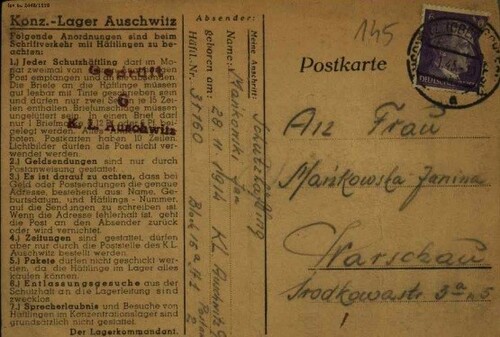 Konz.-Lager Auschwitz
Folgende Anordnungen sind beim
Schriftverkehr mit Häftlingen zu be-
achten:
1.) Jeder Schutzhäftling darf im Mo-
nat zweimal von
Die Briefe an die Häftlinge müssen
gut lesbar mit Tinte geschrieben sein
und dürfen nur zwei Seiten je 15 Zei-
len enthalten. Briefumschläge müssen
ungefüttert sein, in einem Brief dürfen
nur
gelegt werden.
Postkarten haben 10 Zeilen.
Lichtbilder dürfen als Post nicht ver-
wendet werden.
2.) Geldsendungen sind nur durch
Postanweisung gestattet.
3.) Es ist darauf zu achten, dass bei
Geld oder Postsendungen die genaue
Adresse, bestehend aus: Name, Ge-
burtsdatum, und Häftlings - Nummer,
auf die Sendungen zu schreiben ist.
Wenn die Adresse fehlerhaft ist, geht
die Post an den Absender zurück
oder wird vernichtet.
4.) Zeitungen sind gestattet, dürfen
aber nur durch die Poststelle des K.L.
Auschwitz bestellt werden.
5.) Pakete dürfen nicht geschickt wer-
den, da die Häftlinge im Lager alles
kaufen können.
6.) Entlassungsgesuche aus der
Schutzhaft an die Lagerleitung sind
zwecklos.
7.) Sprecherlaubnis und Besuche von
Häftlingen im Konzentrationslager sind
grundsätzlich nicht gestattet.
Der Lagerkommandant.
Geprüft
6
K. L. Auschwitz
Absender:
Meine Anschrift:
Schutzhäftling
Name: Mańkowski Jan
geboren am: 28 11 1914 KL. Auschwitz
Häftl.-Nr. 31160 Block 16 a
145
Postkarte
An Frau
Mańkowska Janina
Warschau